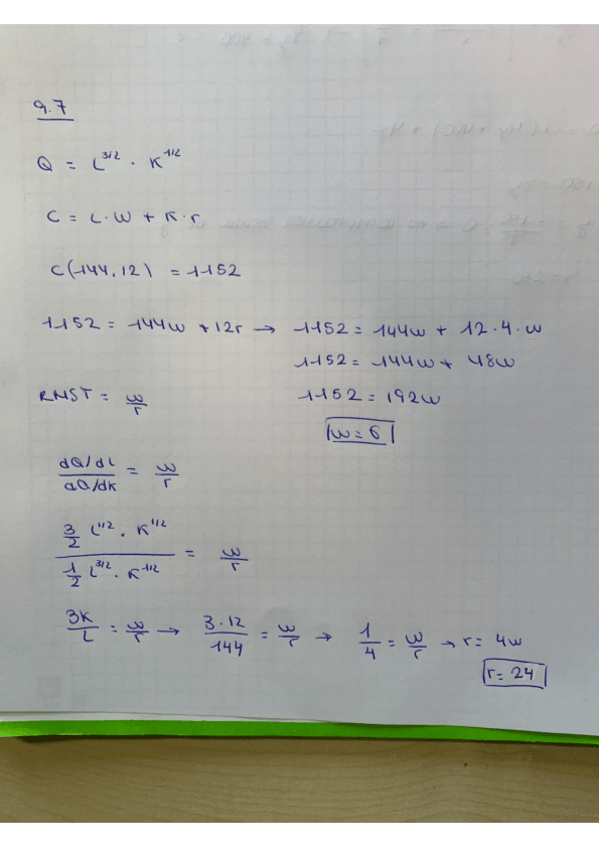 9.7
Q = L^3/2 · K^1/2
C = L·W + K·r
C(144,12) = 1152
1152 = 144w + 12r → 1152 = 144w + 12·4·w
1152 = 144w + 48w
RMST = w/r
1152 = 192w
w = 6
dQ/dL / dQ/dK = w/r
3/2 L^1/2 · K^1/2 / 1/2 L^3/2 · K^-1/2 = w/r
3K/L = w/r → 3·12/144 = w/r → 1/4 = w/r → r = 4w
r = 24